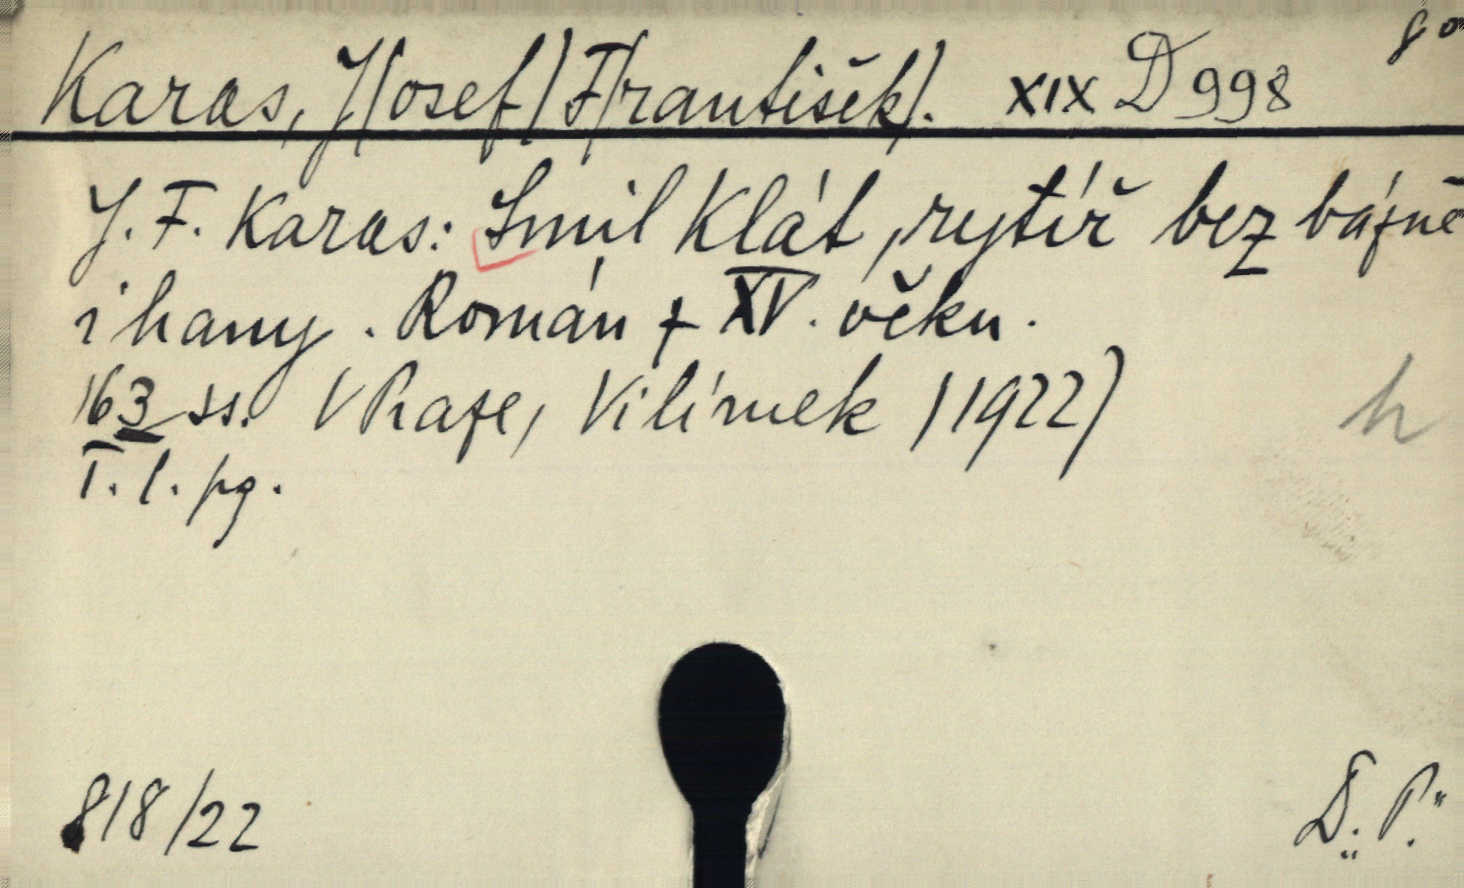 Karas, J/osef/ F/rantišek/. XIX D 998
J. F. Karas: Smil Klát, rytíř bez bázně
i hany. Román z XV. věku.
163 ss. V Praze, Vilímek /1922/
I. l. pg.
h
818/22
D. P.